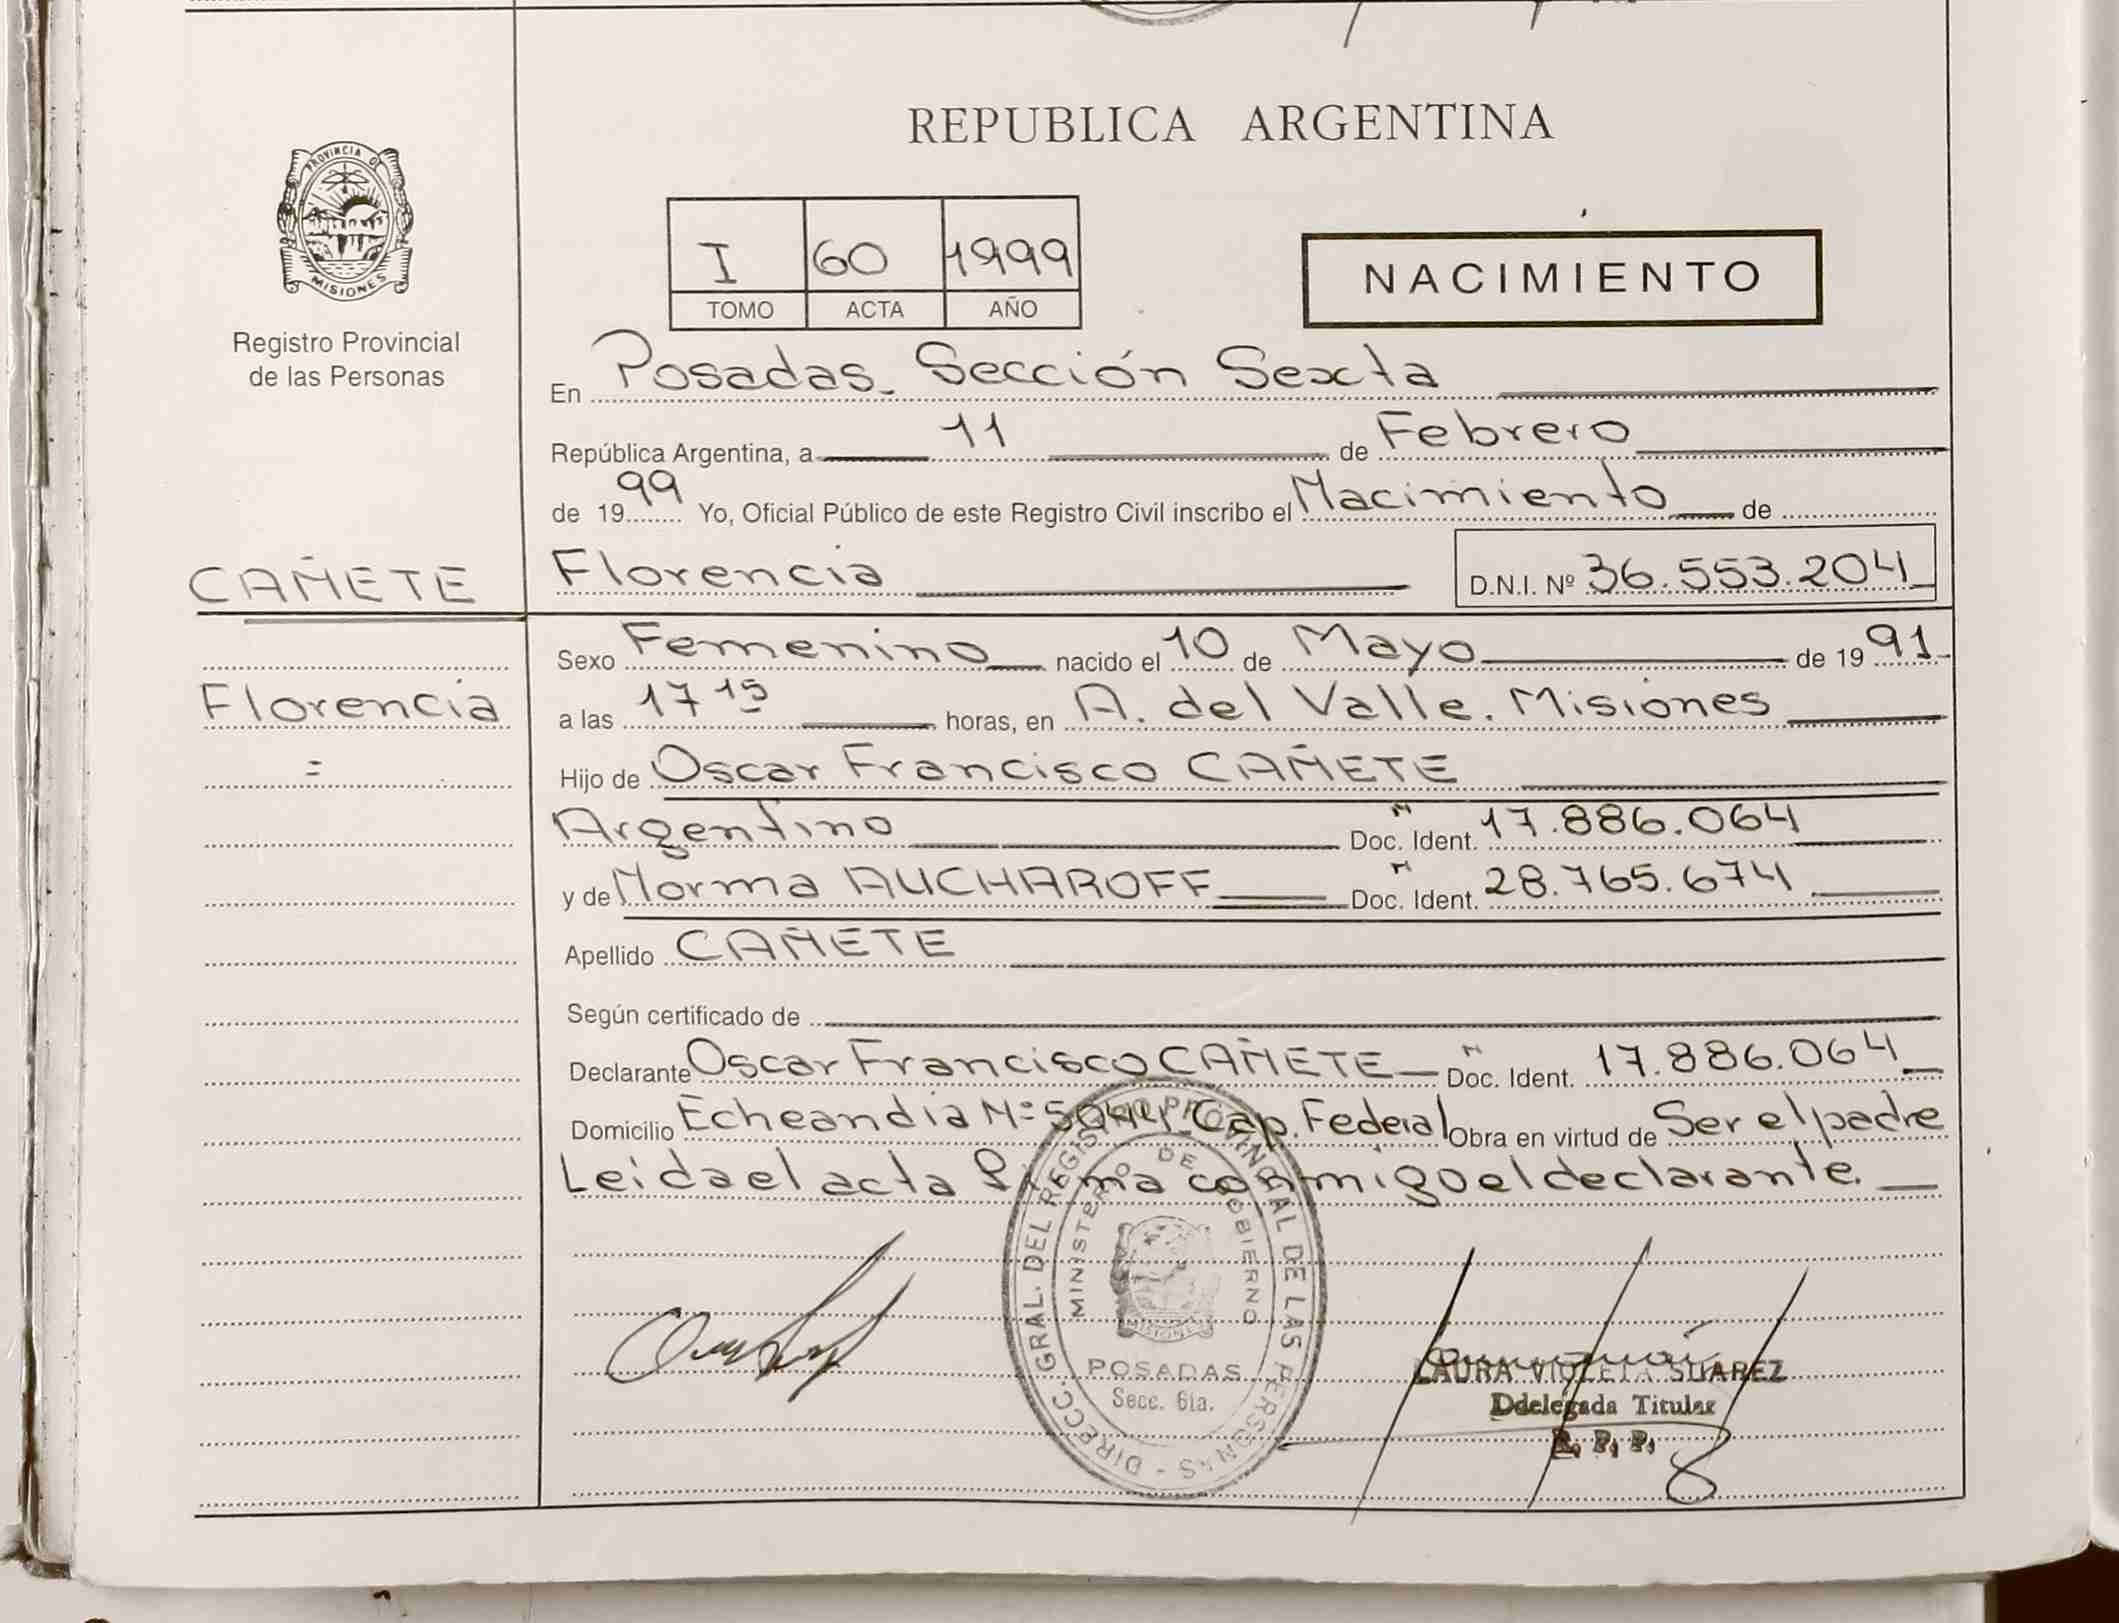 REPUBLICA ARGENTINA
PROVINCIA DE
MISIONES
Registro Provincial
de las Personas
I 60 1999
TOMO ACTA AÑO
NACIMIENTO
En Posadas. Sección Sexta
República Argentina, a 11 de Febrero
de 1999 Yo, Oficial Público de este Registro Civil inscribo el Nacimiento de
CAÑETE
Florencia D.N.I. Nº 36.553.204
Sexo Femenino nacido el 10 de Mayo de 1991
Florencia
a las 17 15 horas, en A. del Valle. Misiones
Hijo de Oscar Francisco CAÑETE
Argentino Doc. Ident. N 17.886.064
y de Norma AUCHAROFF Doc. Ident. N 28.765.674
Apellido CAÑETE
Según certificado de
Declarante Oscar Francisco CAÑETE Doc. Ident. N 17.886.064
Domicilio Echeandia Nº 5044 Cap. Federal Obra en virtud de Ser el padre
Leida el acta firma conmigo el declarante.
DIRECC. GRAL. DEL REGISTRO PROVINCIAL DE LAS PERSONAS
MINISTERIO DE GOBIERNO
MISIONES
POSADAS
Secc. 6ta.
LAURA VIOLETA SUAREZ
Ddelegada Titular
R. P. P.